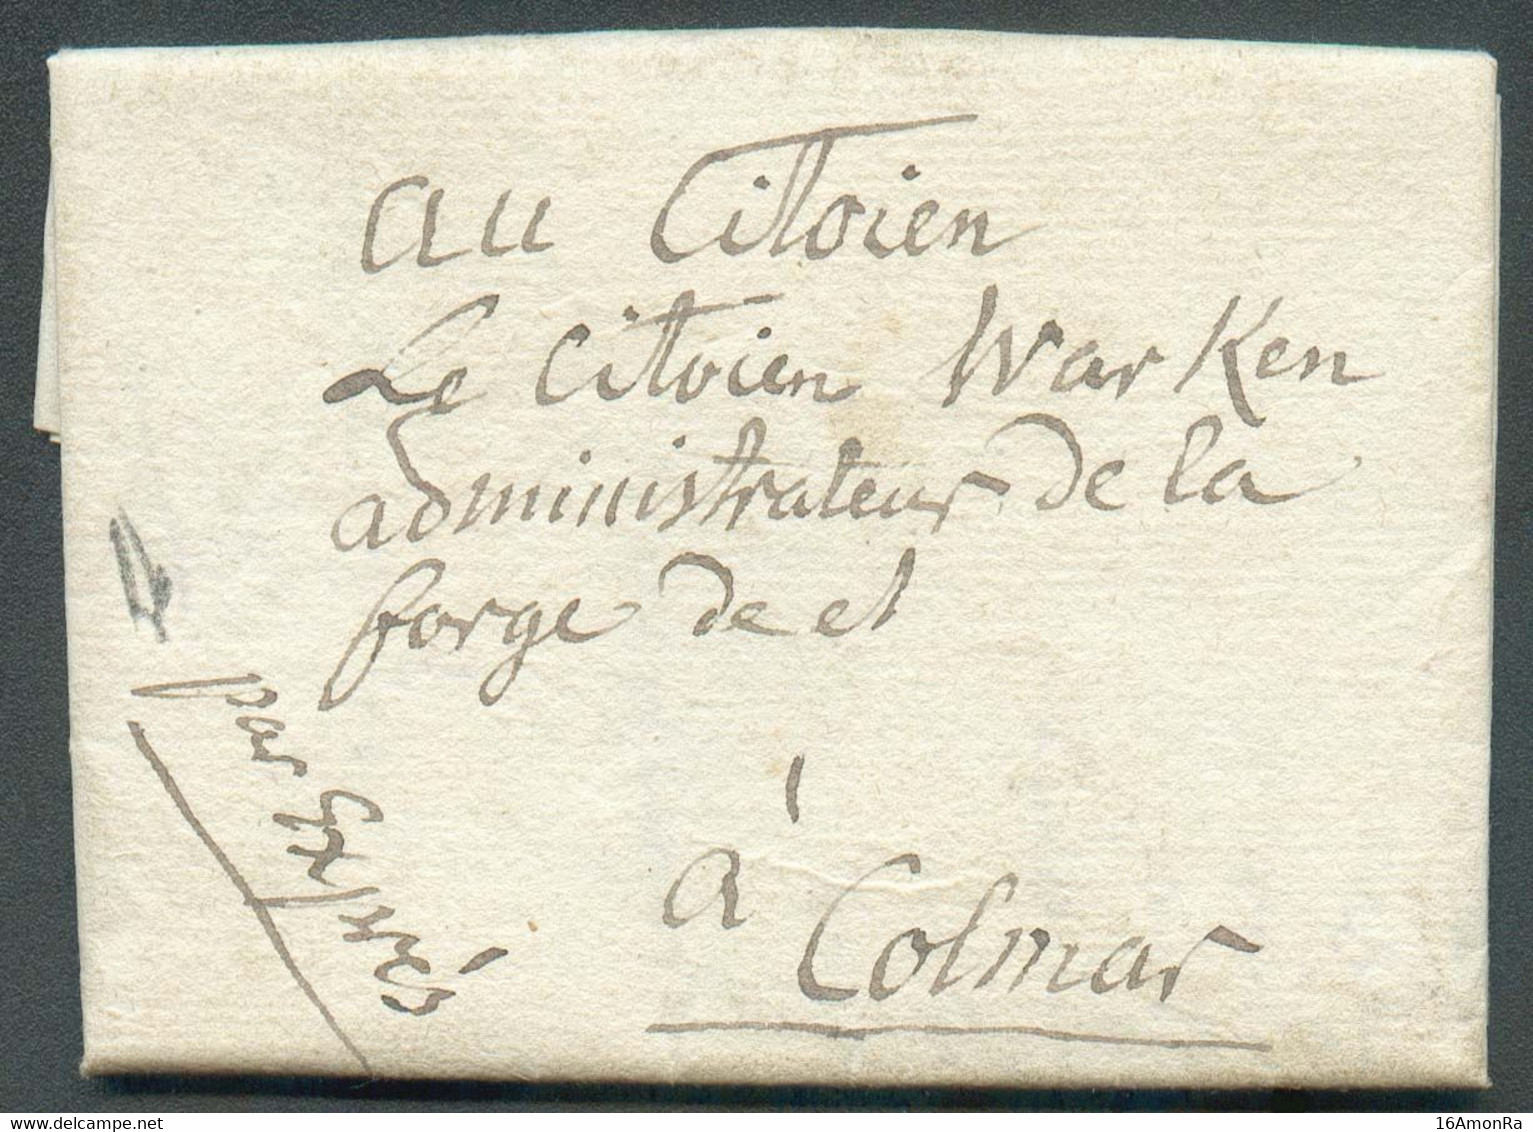 au Citoien
Le Citoien Warken
administrateur de la
forge de et
à Colmar
par Exprés
delcampe.net
16AmonRa